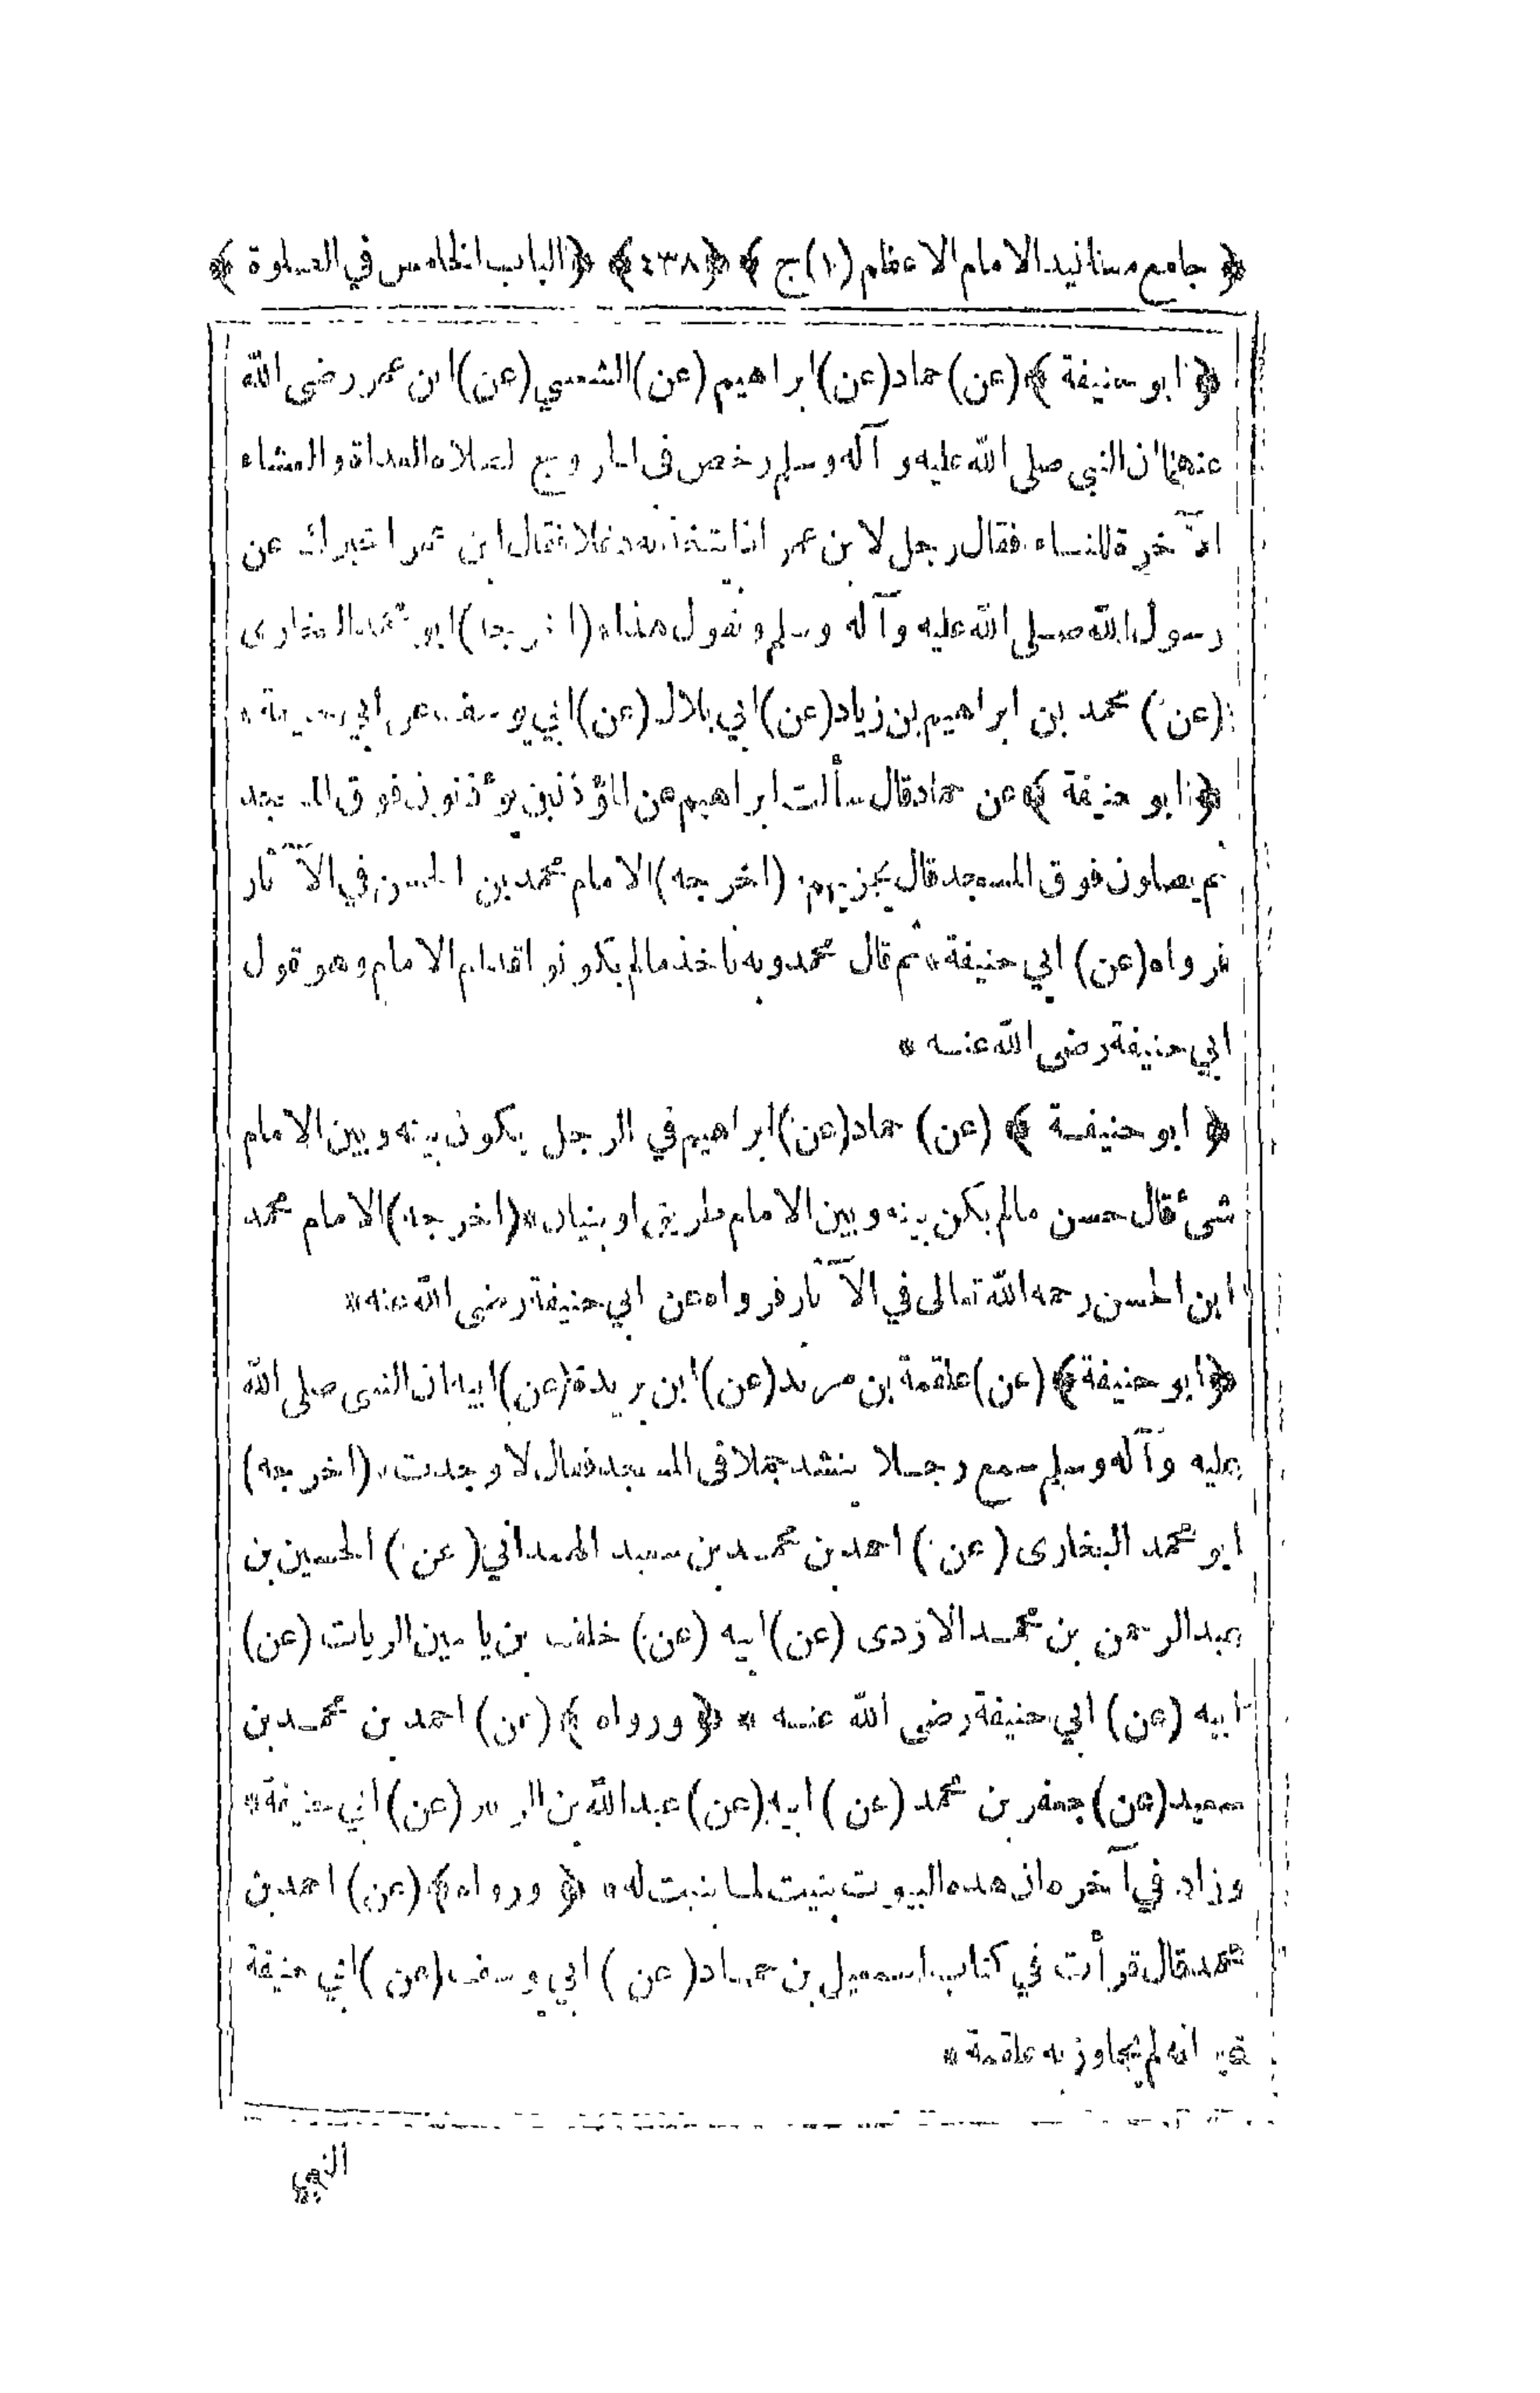 ﴿ جامع مسانيد الامام الاعظم (١) ج ﴾ ﴿٤٣٨﴾ ﴿ الباب الخامس في الصلوة ﴾
﴿ ابو حنيفة ﴾ (عن) حماد (عن) ابراهيم (عن) الشعبي (عن) ابن عمر رضى الله
عنهما ان النبي صلى الله عليه و آله وسلم رخص فى الخروج لصلاة الغداة والعشاء
الآخرة للنساء فقال رجل لابن عمر اذا تتخذنه دغلا فقال ابن عمر اخبرك عن
رسول الله صلى الله عليه وآله وسلم وتقول هذا * (اخرجه) ابو محمد البخارى
(عن) محمد بن ابراهيم بن زياد (عن) ابي بلال (عن) ابي يوسف عن ابي حنيفة *
﴿ ابو حنيفة ﴾ عن حماد قال سألت ابراهيم عن المؤذنين يؤذنون فوق المسجد
ثم يصلون فوق المسجد قال يجزيهم * (اخرجه) الامام محمد بن الحسن في الآثار
فرواه (عن) ابي حنيفة * ثم قال محمد وبه ناخذ مالم يكونوا قدام الامام وهو قول
ابي حنيفة رضى الله عنه *
﴿ ابو حنيفة ﴾ (عن) حماد (عن) ابراهيم في الرجل يكون بينه وبين الامام
شئ قال حسن مالم يكن بينه وبين الامام طريق او بنيان * (اخرجه) الامام محمد
ابن الحسن رحمه الله تعالى في الآثار فرواه عن ابي حنيفة رضى الله عنه *
﴿ ابو حنيفة ﴾ (عن) علقمة بن مرثد (عن) ابن بريدة (عن) ابيه ان النبى صلى الله
عليه وآله وسلم سمع رجلا ينشد جملا فى المسجد فقال لا وجدت * (اخرجه)
ابو محمد البخارى (عن) احمد بن محمد بن سعيد الهمداني (عن) الحسين بن
عبد الرحمن بن محمد الازدى (عن) ابيه (عن) خلف بن ياسين الزيات (عن)
ابيه (عن) ابي حنيفة رضى الله عنه * ﴿ ورواه ﴾ (عن) احمد بن محمد بن
سعيد (عن) جعفر بن محمد (عن) ابيه (عن) عبد الله بن الزبير (عن) ابي حنيفة *
وزاد في آخره ان هذه البيوت بنيت لما بنيت له * ﴿ ورواه ﴾ (عن) احمد بن
محمد قال قرأت في كتاب اسمعيل بن حماد (عن) ابي يوسف (عن) ابي حنيفة
غير انه لم يجاوز به علقمة *